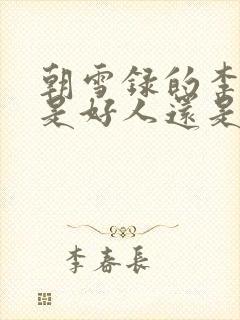 朝雪録的李
是好人還是
李春長